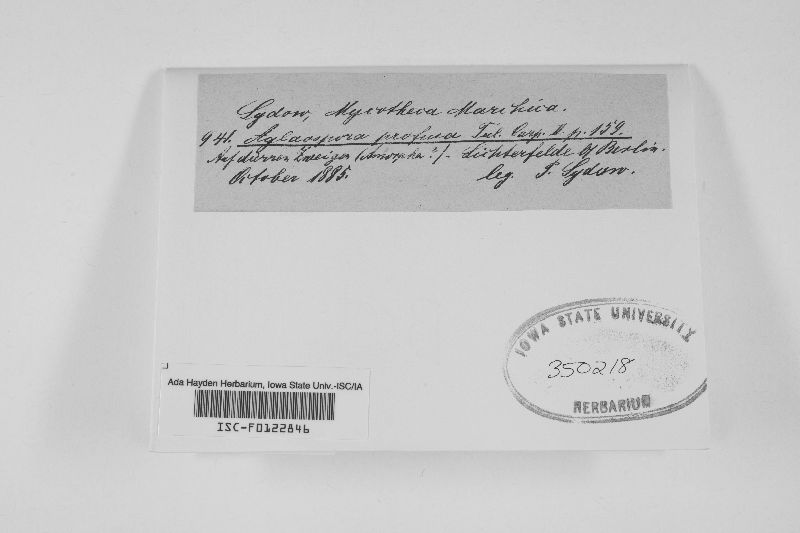 Sydow, Mycotheca Marchica.
941. Aglaospora profusa Tul. Carp. II. p. 159.
Auf dürren Zweigen (Amorpha?) - Lichterfelde bei Berlin.
October 1885. leg. P. Sydow.
IOWA STATE UNIVERSITY
350218
HERBARIUM
Ada Hayden Herbarium, Iowa State Univ.-ISC/IA
ISC-F0122846